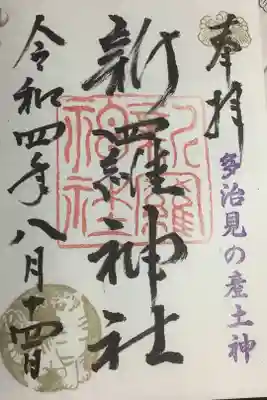 奉拝
多治見の産土神
新羅神社
新羅神社
令和四年八月十四日